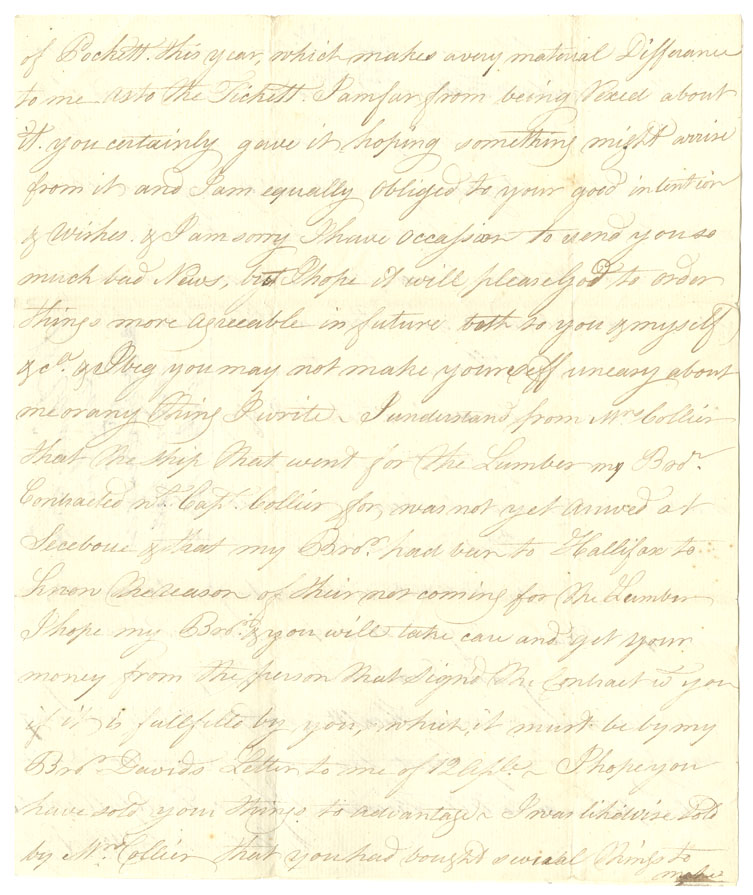 of Pockett. this year, which makes a very material Differance
to me as to the Tickett. I am far from being Vexed about
it. you certainly gave it hoping something might arise
from it and I am equally Obliged to your good intention
& Wishes. & I am sorry I have Occassion to send you so
much bad News, but I hope it will please God to order
things more Agreeable in future both to you & myself
&ca. & I beg you may not make yourself uneasy about
me or any thing I write ~ I understand from Mrs Collier
that the ship that went for the Lumber my Bror.
Contracted wt. Capt. Collier for, was not yet arived at
& that my Bror. had been to Hallifax to
know the reason of their not coming for the Lumber
I hope my Bror. & you will take care and get your
money from the person that Sign'd the Contract wt you
if it is fullfilld by you, which it must be by my
Bror. Davids Letter to me of 12 Aple. ~ I hope you
have sold your things to advantage ~ I was likewise told
by Mrs Collier that you had bought several things to
make